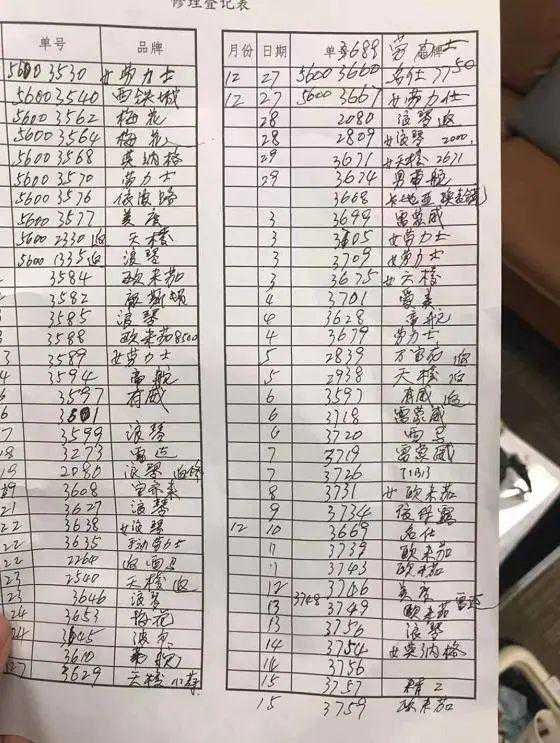 修理登记表
单号 品牌
56003530 女劳力士
56003540 西铁城
56003562 梅花
56003564 梅花
56003568 英纳格
56003570 劳力士
56003576 依波路
56003577 美度
56002330 天梭
56001335 浪琴
3584 欧米茄
3582
3585 浪琴
3588 欧米茄 8500
3589 女劳力士
3594 帝舵
3597 有威
3599 浪琴
3273 雷达
2080 浪琴
3608 宝齐来
21 3627 浪琴
22 3638 女浪琴
22 3635
22 2260
23 2540 天梭
23 3646 浪琴
24 3653 梅花
24 3645
3610
27 3629 天梭
月份 日期 单号 3689 品牌
12 27 56003660 名仕 7750
12 27 56003667 女劳力仕
28 2080 浪琴
28 2809 女浪琴 2000
29 3671 女天梭 2671
29 3674 男帝舵
3668 卡地亚
3 3699 雷蒙威
3 女劳力士
3 3709 女劳力士
3 3675 女天梭
4 3701 爱美
4 3628 帝舵
4 3679 劳力士
5 2839 万宝龙
5 2938 天梭
6 3597 有威
6 3718 雷蒙威
6 3720
7 3719 雷蒙威
7 3726
8 3731 女欧米茄
9 3734 依波露
12 10 3669 名仕
11 3739 欧米茄
11 3743 欧米茄
12 3746 美度
13 3748 3749 欧米茄
13 3756 浪琴
14 3754 女英纳格
14 3756
15 3757 精工
15 3759 欧米茄